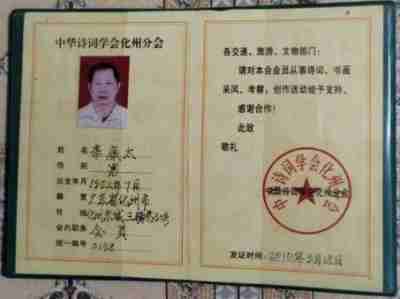 中华诗词学会化州分会
姓名 李 太
性别 男
出生年月 1952年7月
籍贯 广东省化州市
住址
会内职务 会员
统一编号
各交通、旅游、文物部门:
请对本会会员从事诗词、书画
采风、考察,创作活动给予支持、
感谢合作!
此致
敬礼
中华诗词学会化州分会
发证时间:2010年3月18日